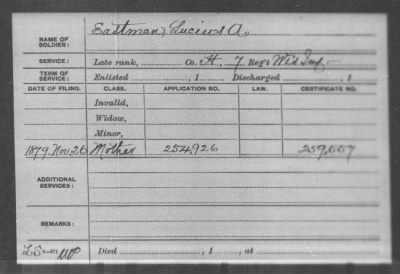 NAME OF SOLDIER: Eastman, Lucius A.
SERVICE: Late rank, Co. H, 7 Reg't Wis Inf.
TERM OF SERVICE: Enlisted , 1 Discharged , 1
DATE OF FILING. CLASS. APPLICATION NO. LAW. CERTIFICATE NO.
Invalid,
Widow,
Minor,
1879, Nov. 26 Mother 254,926 259,557
ADDITIONAL SERVICES:
REMARKS:
Died , 1 , at